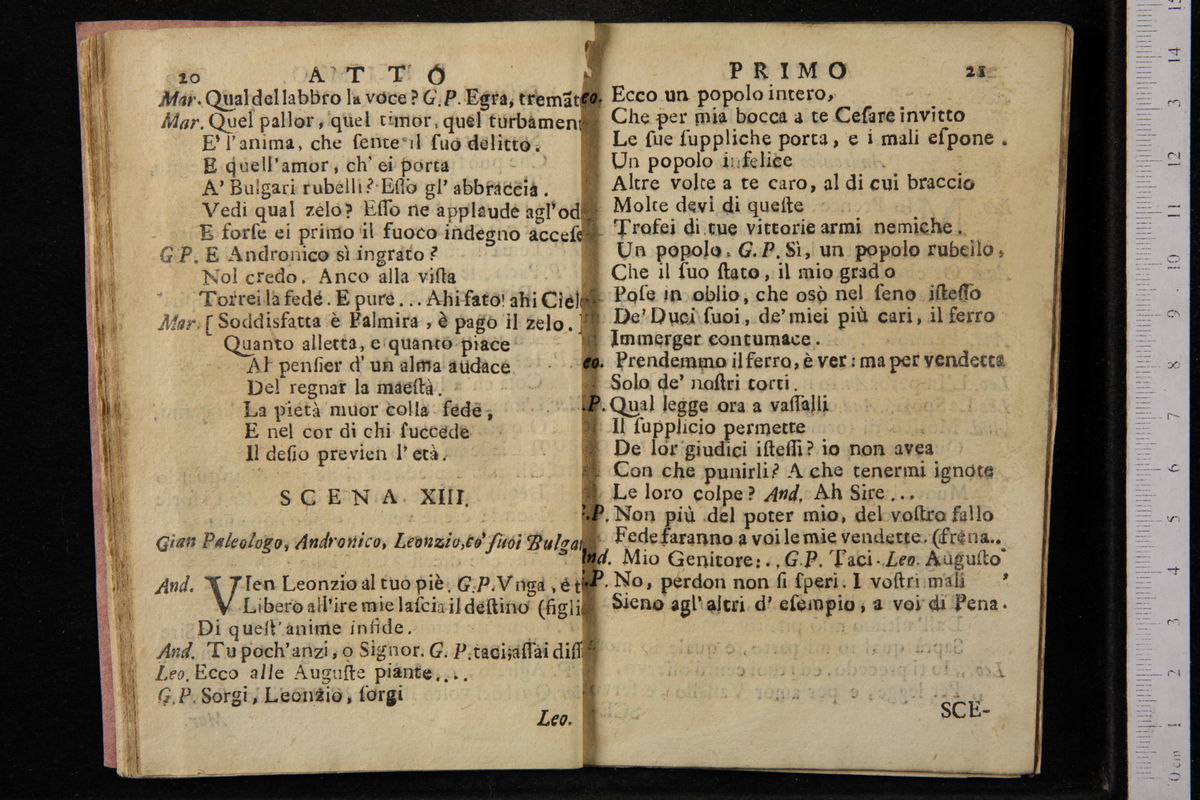 20 ATTO
Mar. Qual del labbro la voce? G.P. Egra, tremãt
Mar. Quel pallor, quel timor, quel turbamen
E' l'anima, che ſente il ſuo delitto.
E quell'amor, ch' ei porta
A' Bulgari rubelli? Eſſo gl' abbraccia.
Vedi qual zelo? Eſſo ne applaude agl'od
E forſe ei primo il fuoco indegno acceſe
G P. E Andronico sì ingrato?
Nol credo. Anco alla viſta
Torrei la fede. E pure... Ahi fato! ahi Ciel
Mar. [ Soddisfatta è Palmira, è pago il zelo. ]
Quanto alletta, e quanto piace
Al penſier d' un alma audace
Del regnar la maeſtà.
La pietà muor colla fede,
E nel cor di chi ſuccede
Il deſio previen l' età.
SCENA XIII.
Gian Paleologo, Andronico, Leonzio, co' ſuoi Bulga
And. VIen Leonzio al tuo piè. G.P. Vnga, e t
Libero all'ire mie laſcia il deſtino (figli
Di queſt'anime infide.
And. Tu poch'anzi, o Signor. G. P. taci; aſſai diſſ
Leo. Ecco alle Auguſte piante....
G.P. Sorgi, Leonzio, ſorgi
Leo.
PRIMO 21
eo. Ecco un popolo intero,
Che per mia bocca a te Ceſare invitto
Le ſue ſuppliche porta, e i mali eſpone.
Un popolo infelice
Altre volte a te caro, al di cui braccio
Molte devi di queſte
Trofei di tue vittorie armi nemiche.
Un popolo. G.P. Sì, un popolo rubello,
Che il ſuo ſtato, il mio grado
Poſe in oblio, che osò nel ſeno iſteſſo
De' Duci ſuoi, de' miei più cari, il ferro
Immerger contumace.
eo. Prendemmo il ferro, è ver: ma per vendetta
Solo de' noſtri torti.
.P. Qual legge ora a vaſſalli
Il ſupplicio permette
De lor giudici iſteſſi? io non avea
Con che punirli? A che tenermi ignote
Le loro colpe? And. Ah Sire...
.P. Non più del poter mio, del voſtro fallo
Fede faranno a voi le mie vendette. (frena..
nd. Mio Genitore:.. G.P. Taci. Leo. Auguſto
.P. No, perdon non ſi ſperi. I voſtri mali
Sieno agl'altri d' eſempio, a voi di Pena.
SCE-